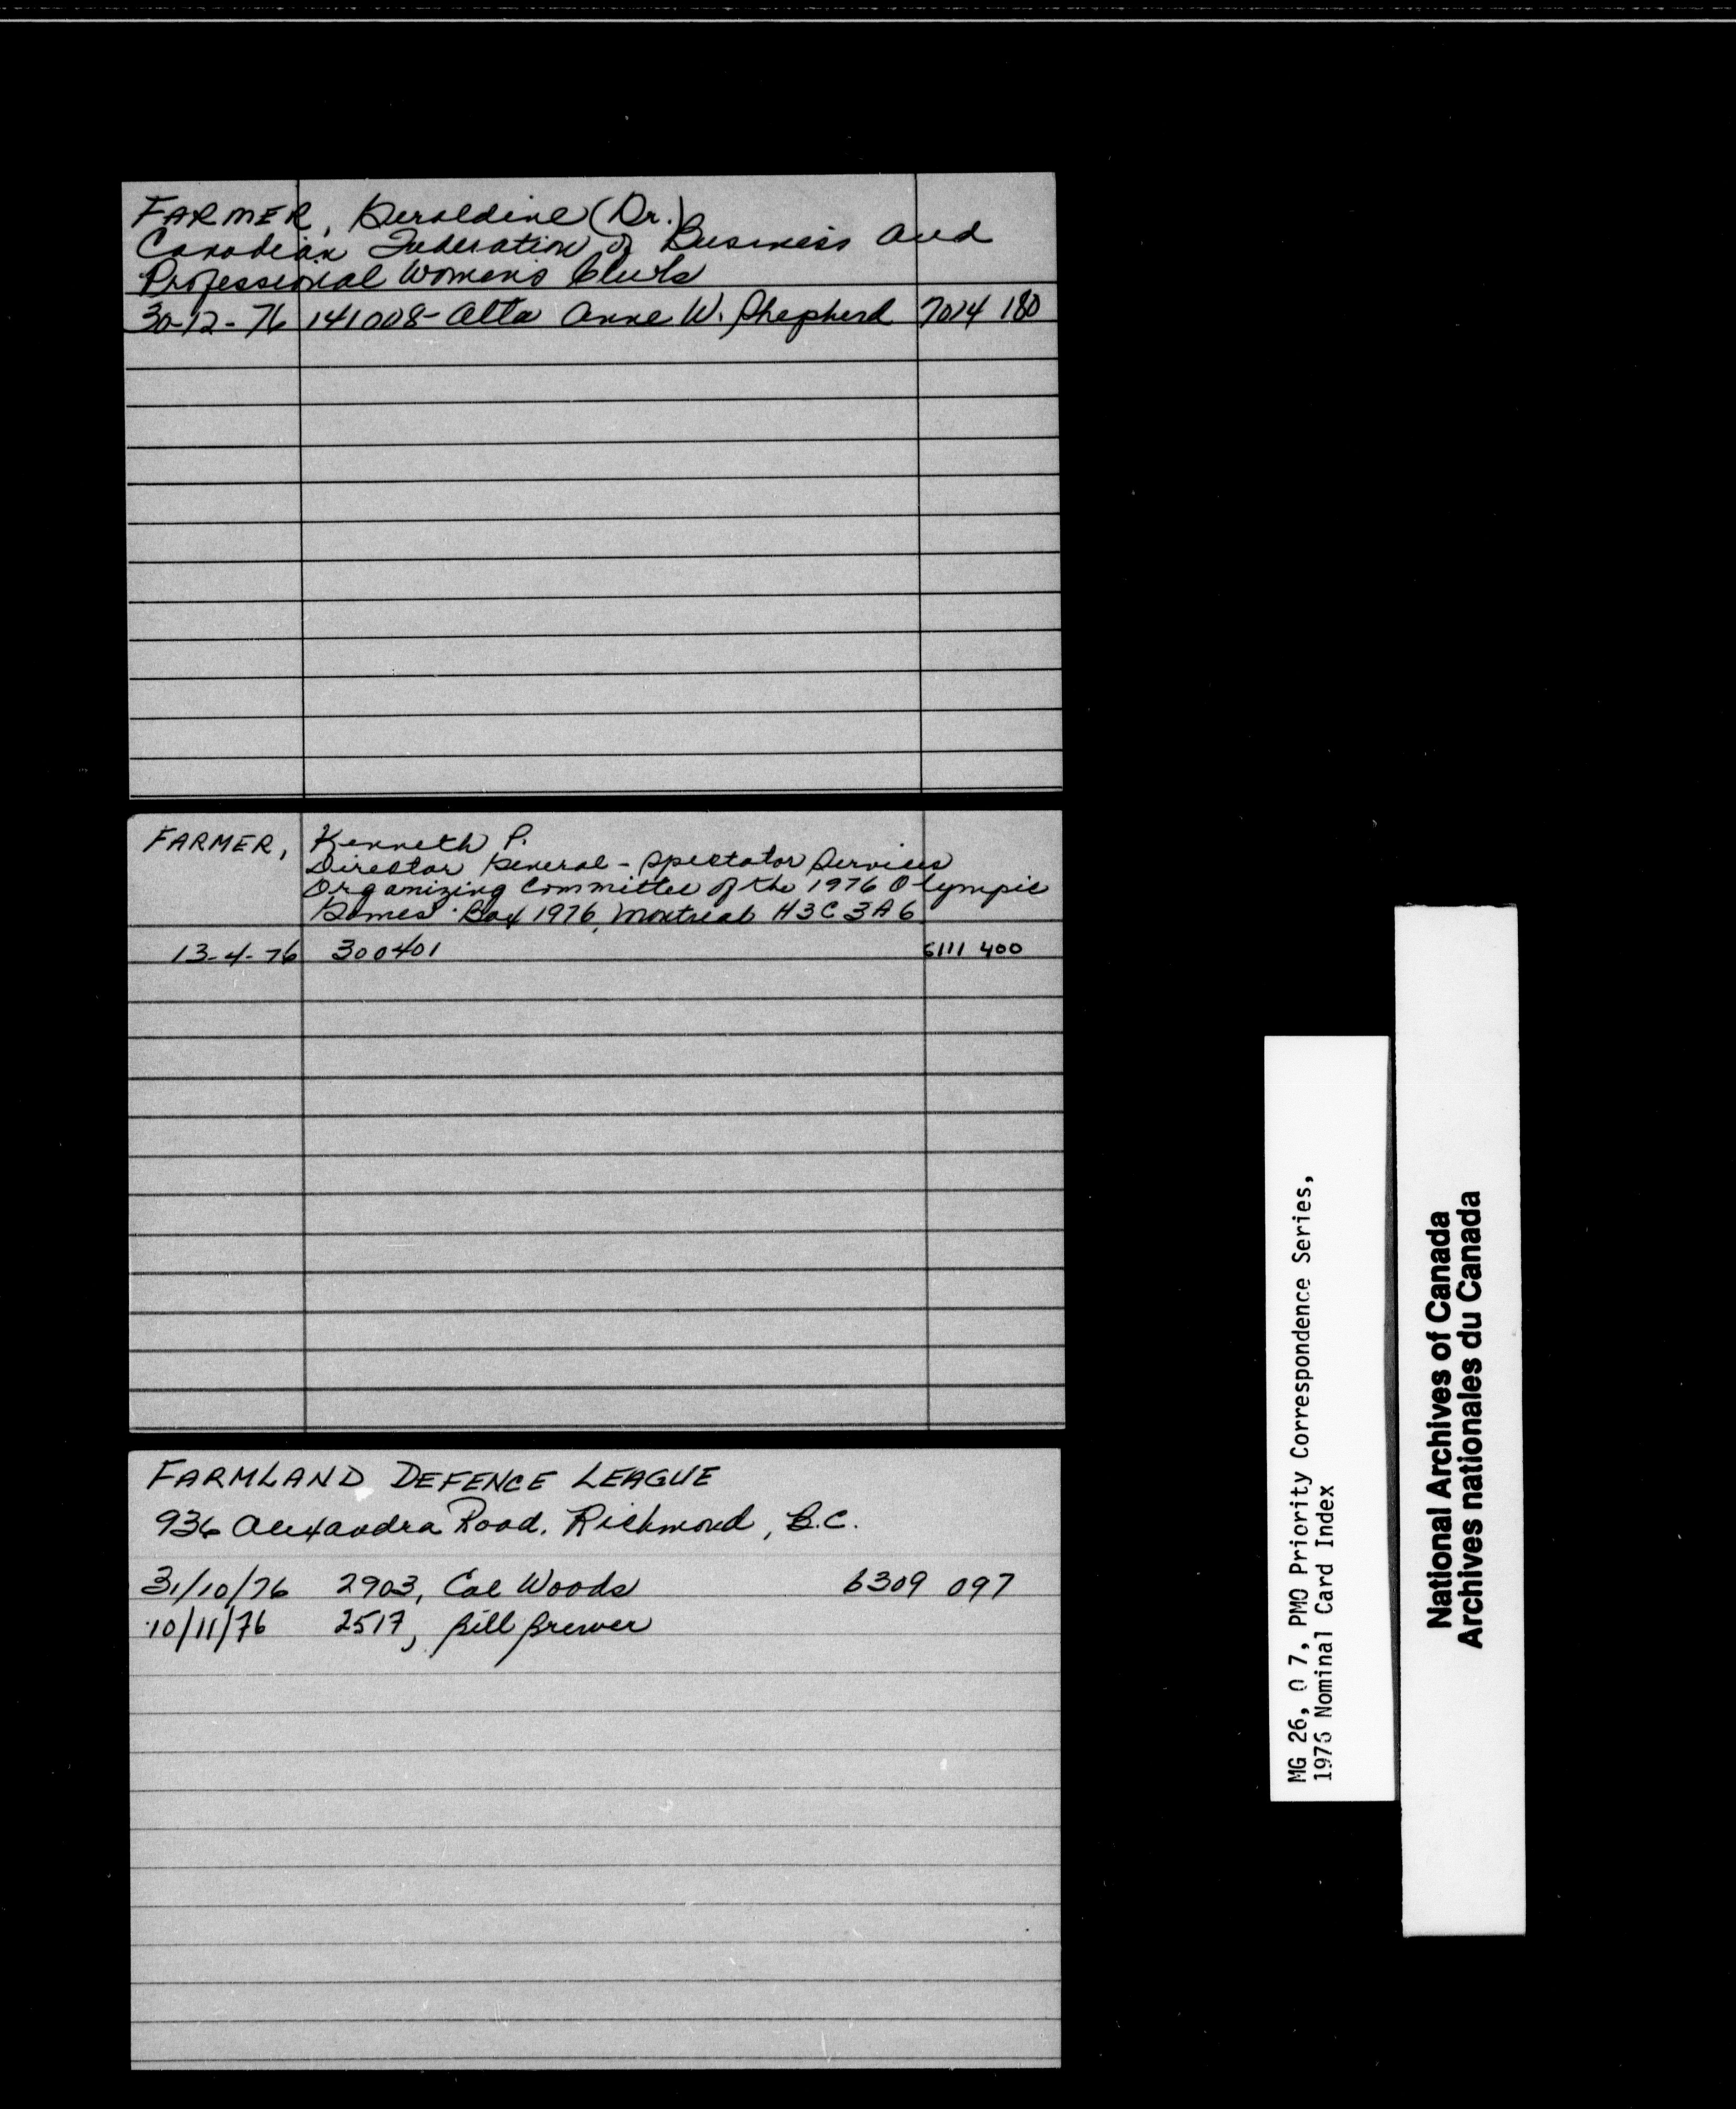 FARMER, Geraldine (Dr.)
Canadian Federation of Business and
Professional Womens Clubs
30-12-76 141008- Alta Anne W. Shepherd 7014 180
FARMER, Kenneth P.
Director General - Spectator Services
Organizing Committee of the 1976 Olympic
Games. Box 1976, Montreal H3C 3A6
13-4-76 300401 6111 400
FARMLAND DEFENCE LEAGUE
936 Alexandra Road, Richmond, B.C.
31/10/76 2903, Cal Woods 6309 097
10/11/76 2517, Bill Brewer
MG 26, O 7, PMO Priority Correspondence Series,
1976 Nominal Card Index
National Archives of Canada
Archives nationales du Canada